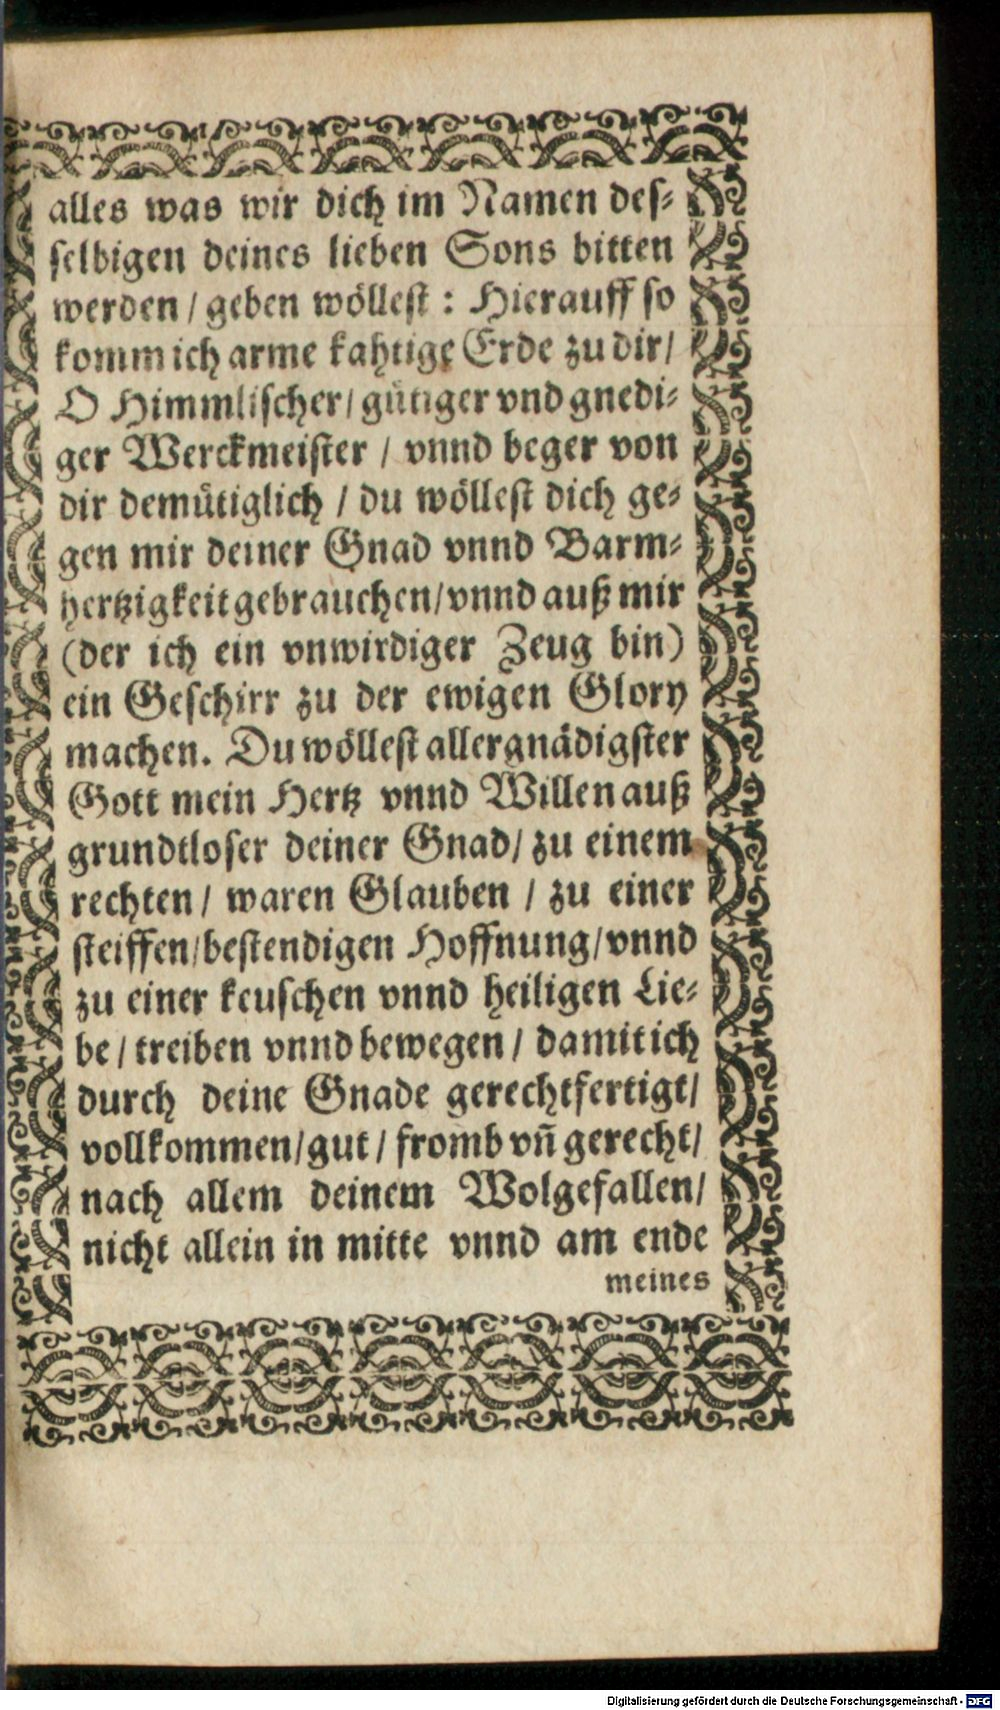 alles was wir dich im Namen des-
selbigen deines lieben Sons bitten
werden / geben wöllest : Hierauff so
komm ich arme kahtige Erde zu dir /
O Himmlischer / gütiger vnd gnedi-
ger Werckmeister / vnnd beger von
dir demütiglich / du wöllest dich ge-
gen mir deiner Gnad vnnd Barm-
hertzigkeit gebrauchen / vnnd auß mir
(der ich ein vnwirdiger Zeug bin)
ein Geschirr zu der ewigen Glory
machen. Du wöllest allergnädigster
Gott mein Hertz vnnd Willen auß
grundtloser deiner Gnad / zu einem
rechten / waren Glauben / zu einer
steiffen / bestendigen Hoffnung / vnnd
zu einer keuschen vnnd heiligen Lie-
be / treiben vnnd bewegen / damit ich
durch deine Gnade gerechtfertigt /
vollkommen / gut / fromb vñ gerecht /
nach allem deinem Wolgefallen /
nicht allein in mitte vnnd am ende
meines
Digitalisierung gefördert durch die Deutsche Forschungsgemeinschaft - DFG